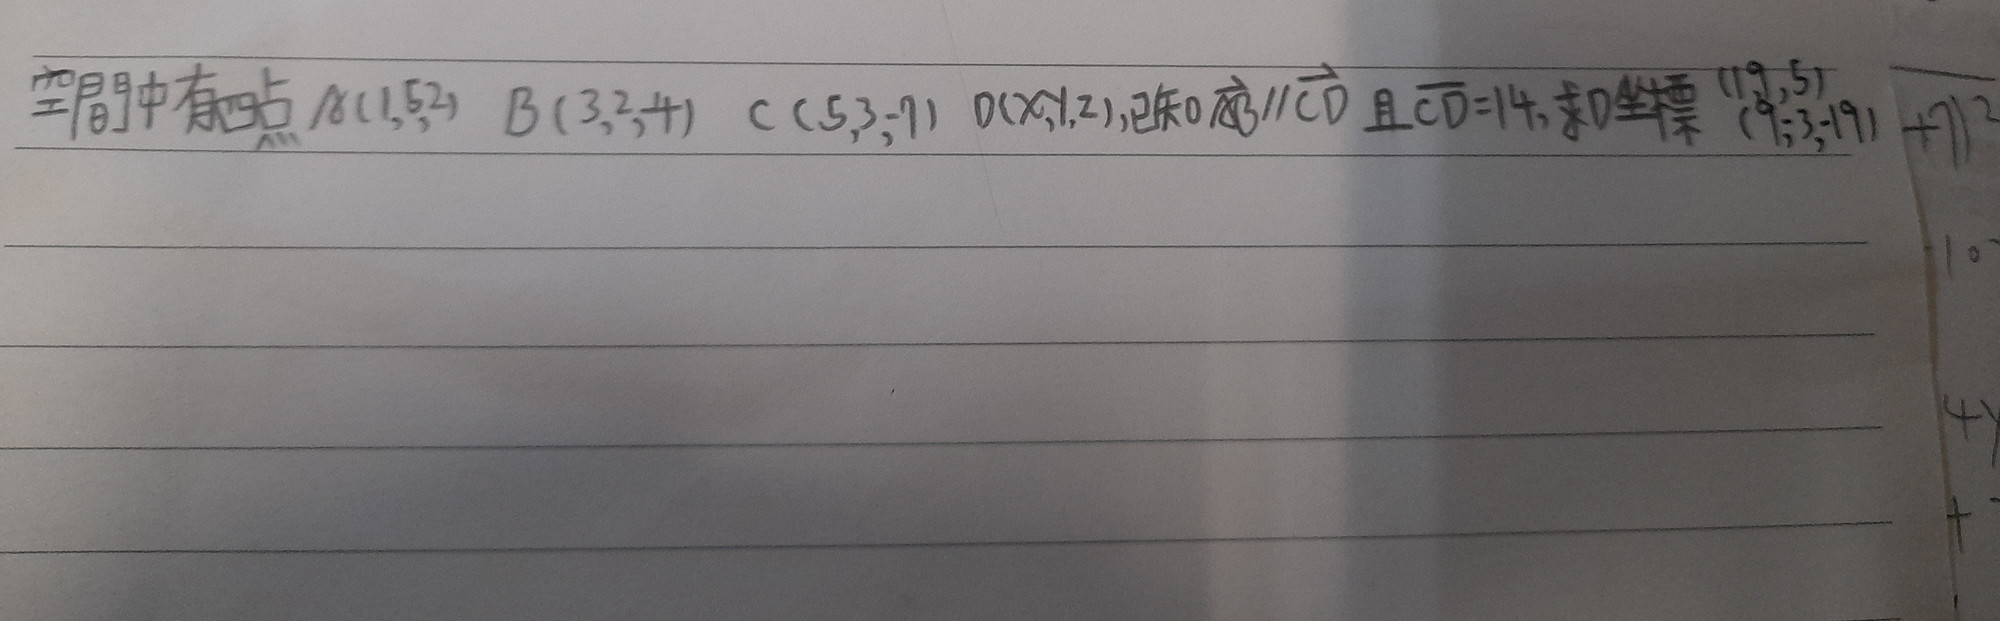 空間中有四點 A(1,5,2) B(3,2,-4) C(5,3,-7) D(x,y,z),已知 AB//CD 且CD=14,求D坐標 (1,9,5)
(9,-3,-19)
+7)²
10
4y
+